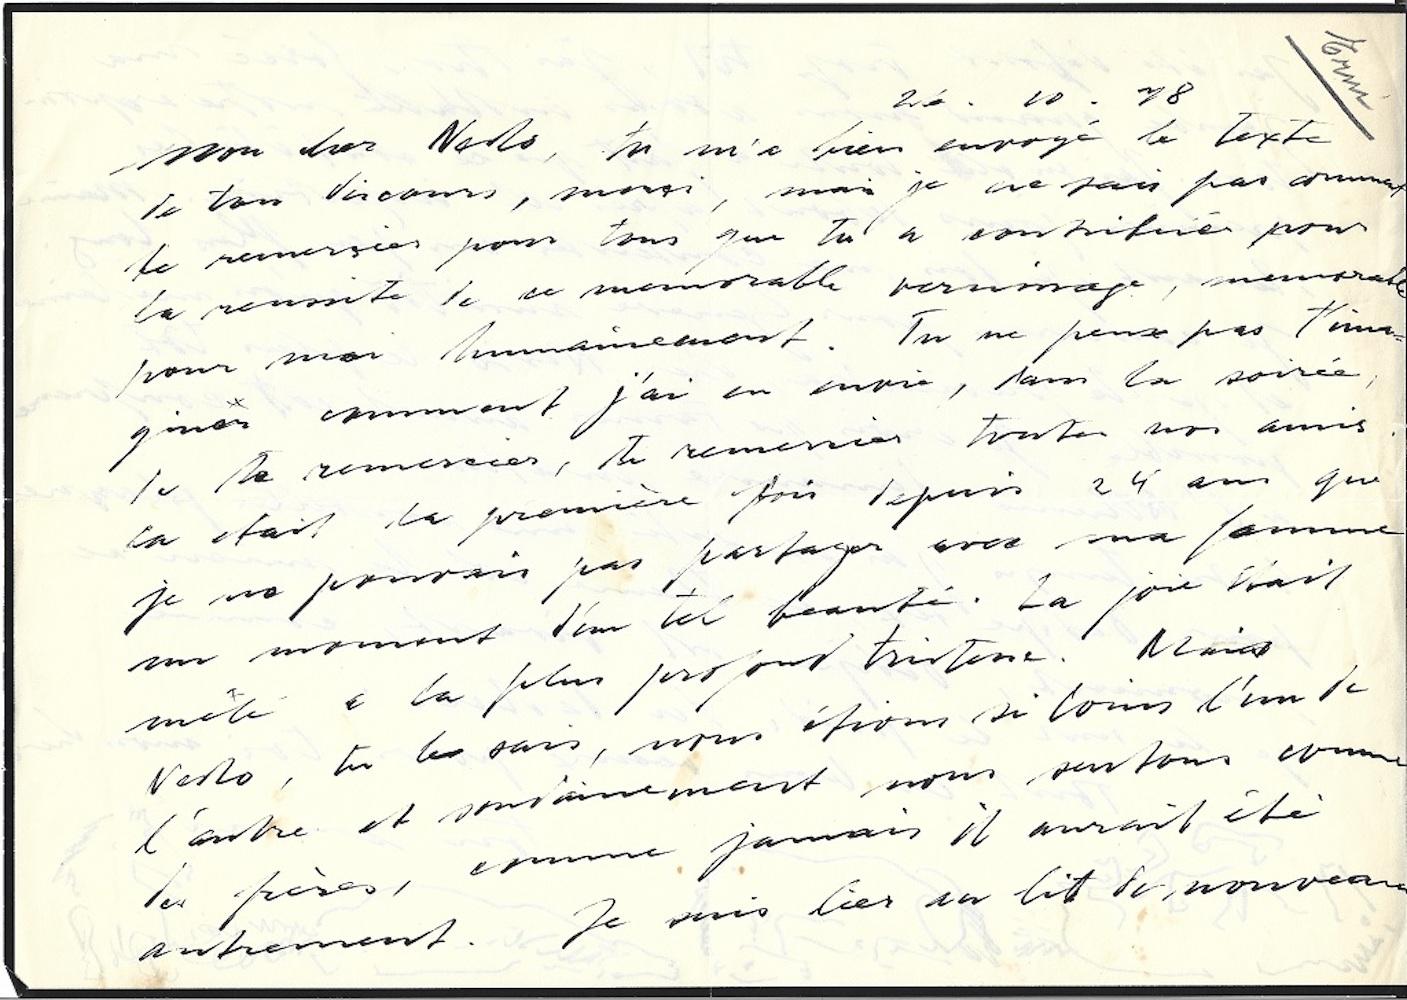 26. 10. 78
Mon cher Nedo, tu m'a bien envoyé le texte
de ton discours, merci, mais je ne sais pas comment
te remercier pour tous que tu a contribuér pour
la reussite de ce memorable vernissage, memorable
pour moi humainement. Tu ne peux pas t'ima-
giner comment j'ai eu envie, dans la soirée,
de te remercier, te remercier toutes nos amis.
Ca etait la première fois depuis 24 ans que
je ne pouvais pas partager avec ma femme
un moment d'un tel beauté. La joie était
mêlé a la plus profond tristesse. Mais
Nedo, tu le sais, nous étions si loins l'un de
l'autre et soudainement nous sentons comme
des frères, comme jamais il aurait été
autrement. Je suis lier au lit de nouveau